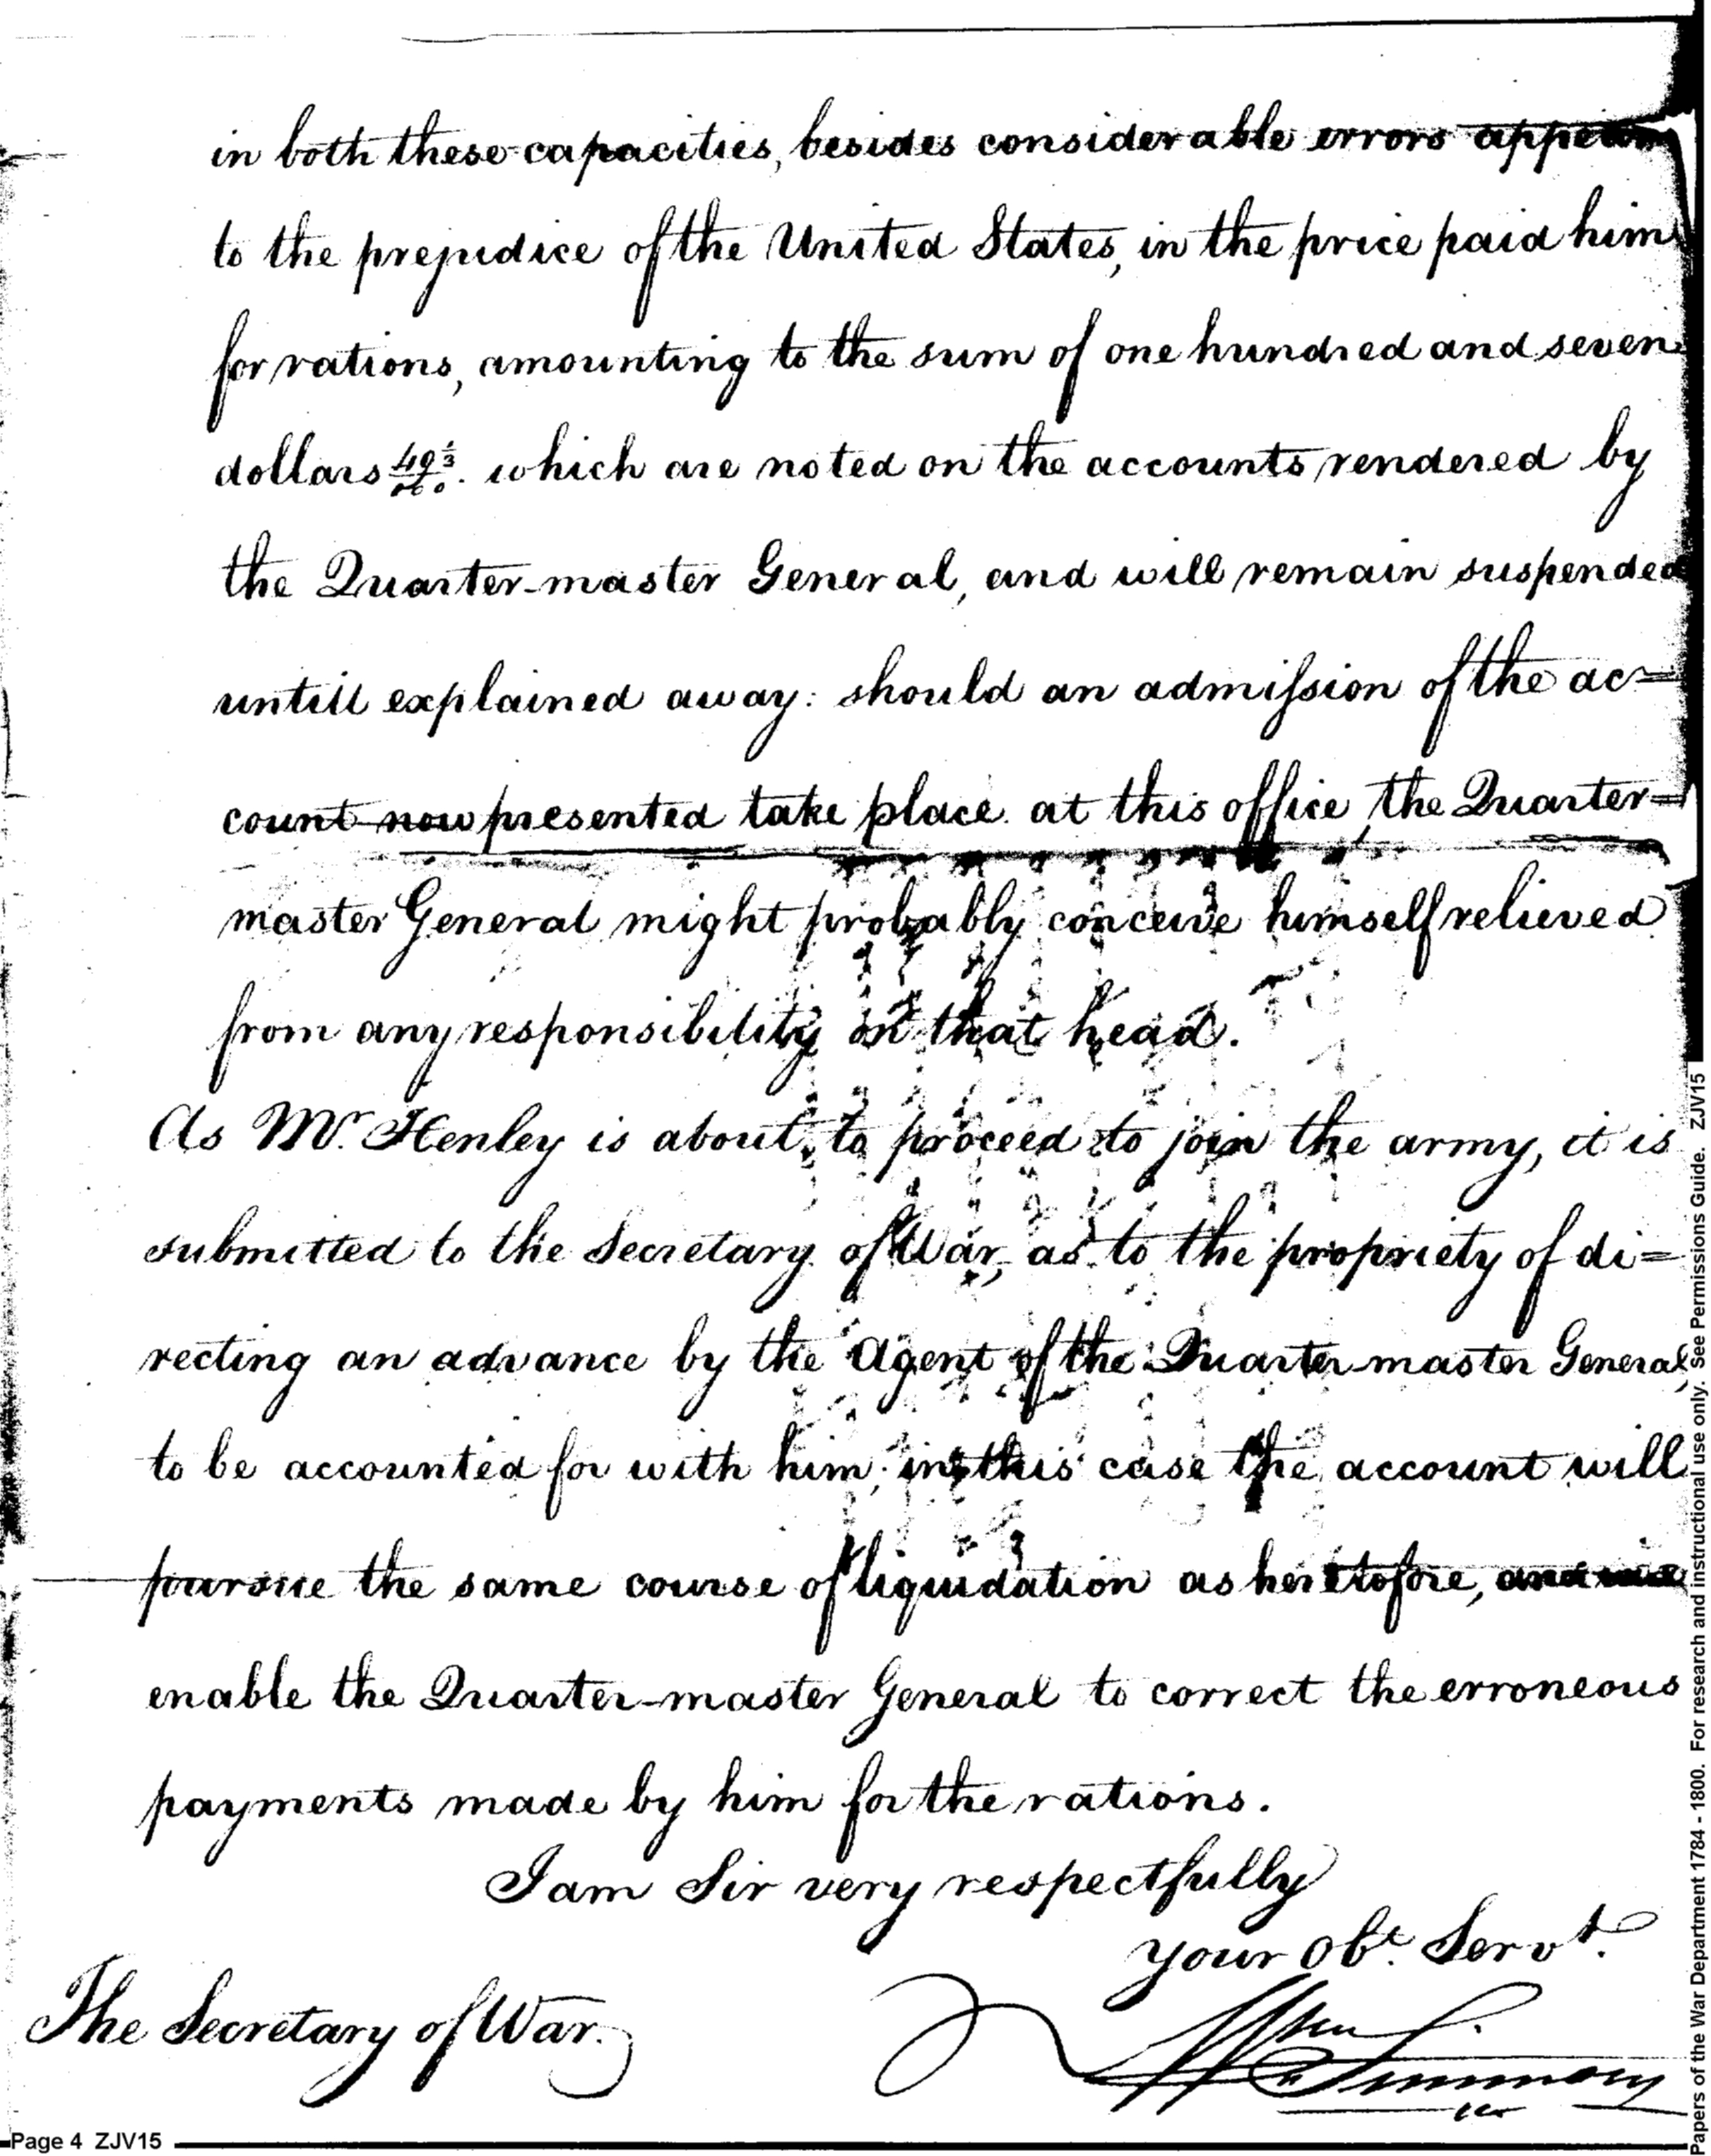 in both these capacities, besides considerable errors appear
to the prejudice of the United States, in the price paid him
for rations, amounting to the sum of one hundred and seven
dollars which are noted on the accounts rendered by
the Quarter-master General, and will remain suspended
untill explained away: should an admission of the ac=
count now presented take place at this office, the Quarter=
master General might probably conceive himself relieved
from any responsibility on that head.
As Mr. Henley is about to proceed to join the army, it is
submitted to the Secretary of War, as to the propriety of di=
recting an advance by the Agent of the Quarter-master General,
to be accounted for with him; in this case the account will
pursue the same course of liquidation as heretofore, and
enable the Quarter-master General to correct the erroneous
payments made by him for the rations.
I am Sir very respectfully
your Obt. Servt.
Wm Simmons
The Secretary of War.
Page 4 ZJV15
Papers of the War Department 1784 - 1800. For research and instructional use only. See Permissions Guide. ZJV15